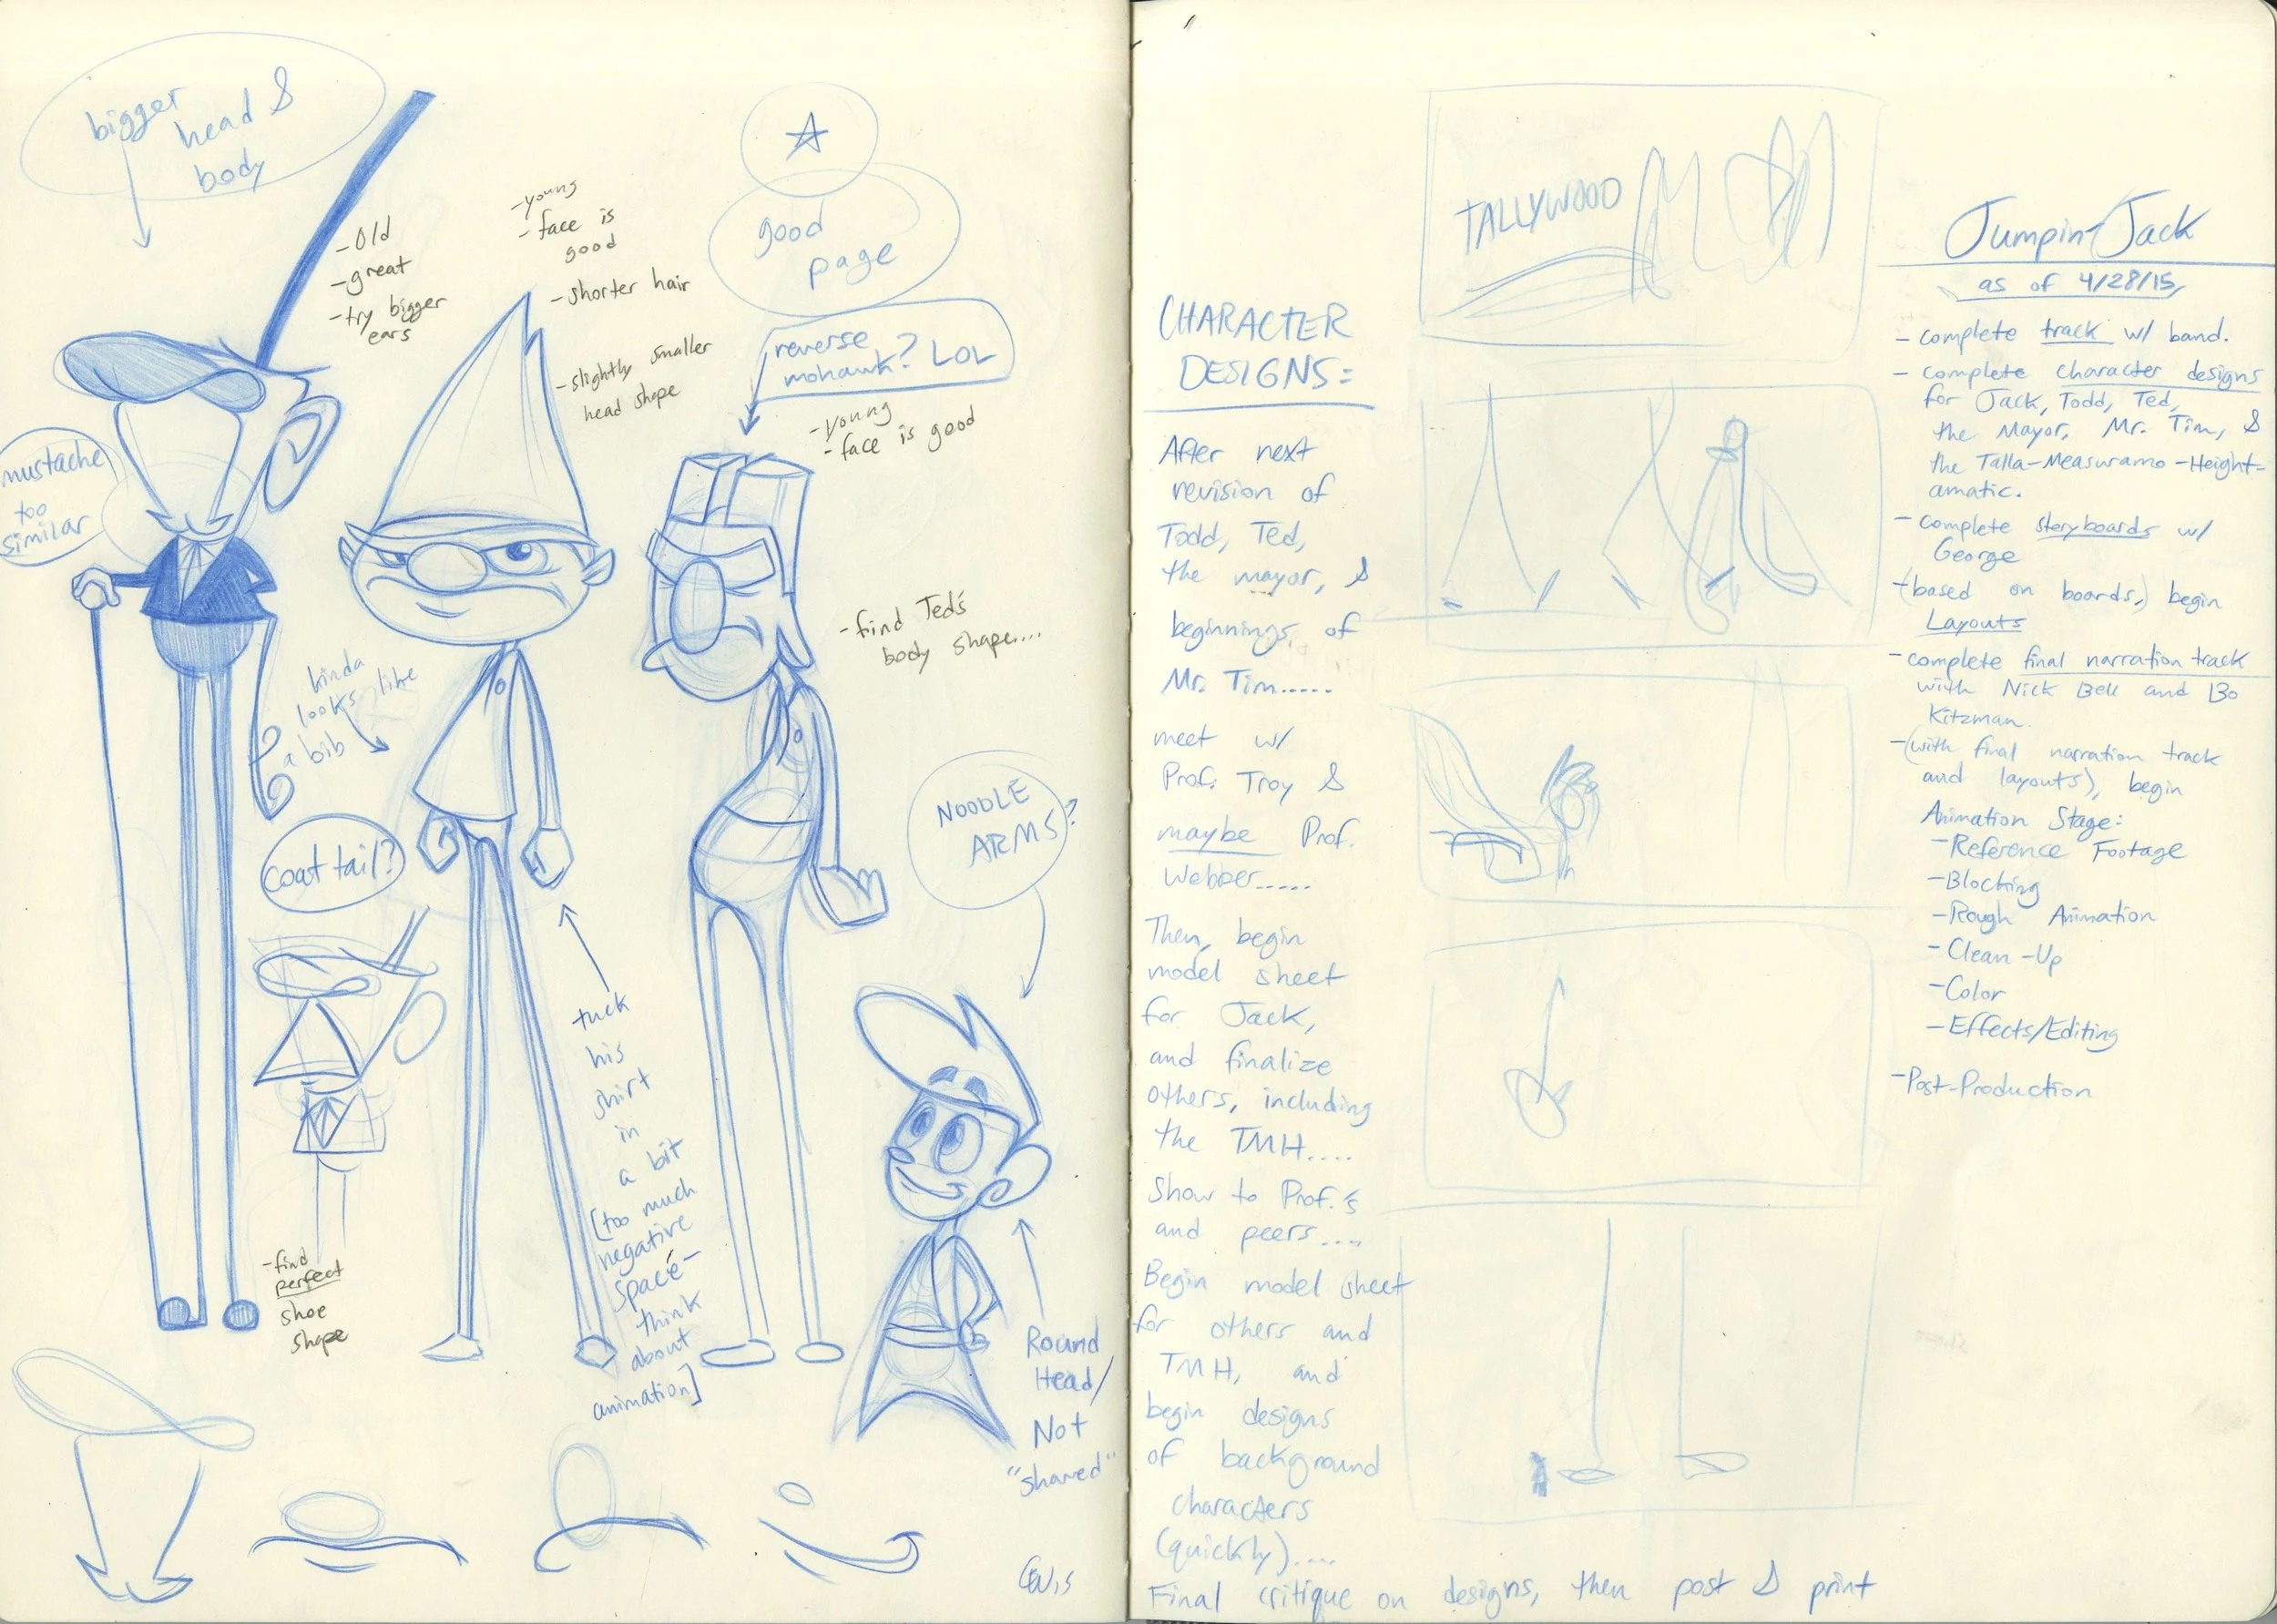 bigger
head &
body
- Old
- great
- try bigger
ears
- young
- face is
good
- shorter hair
- slightly smaller
head shape
good
page
reverse
mohawk? LOL
- young
- face is good
mustache
too
similar
- find Ted's
body shape....
kinda
looks like
a bib
coat tail?
NOODLE
ARMS?
tuck
his
shirt
in
a bit
[too much
negative
space -
think
about
animation]
- find
perfect
shoe
shape
Round
Head/
Not
"shaved"
CHARACTER
DESIGNS:
After next
revision of
Todd, Ted,
the mayor, &
beginnings of
Mr. Tim.....
meet w/
Prof. Troy &
maybe Prof.
Webber.....
Then, begin
model sheet
for Jack,
and finalize
others, including
the TMH....
Show to Prof.'s
and peers....
Begin model sheet
for others and
TMH, and
begin designs
of background
characters
(quickly)....
Final critique on designs, then post & print
TALLYWOOD
Jumpin Jack
as of 4/28/15
- complete track w/ band.
- complete character designs
for Jack, Todd, Ted,
the Mayor, Mr. Tim, &
the Talla-Measuramo-Height-
amatic.
- complete storyboards w/
George
- (based on boards,) begin
Layouts
- complete final narration track
with Nick Bell and Bo
Kitzman.
- (with final narration track
and layouts), begin
Animation Stage:
- Reference Footage
- Blocking
- Rough Animation
- Clean-Up
- Color
- Effects/Editing
- Post-Production